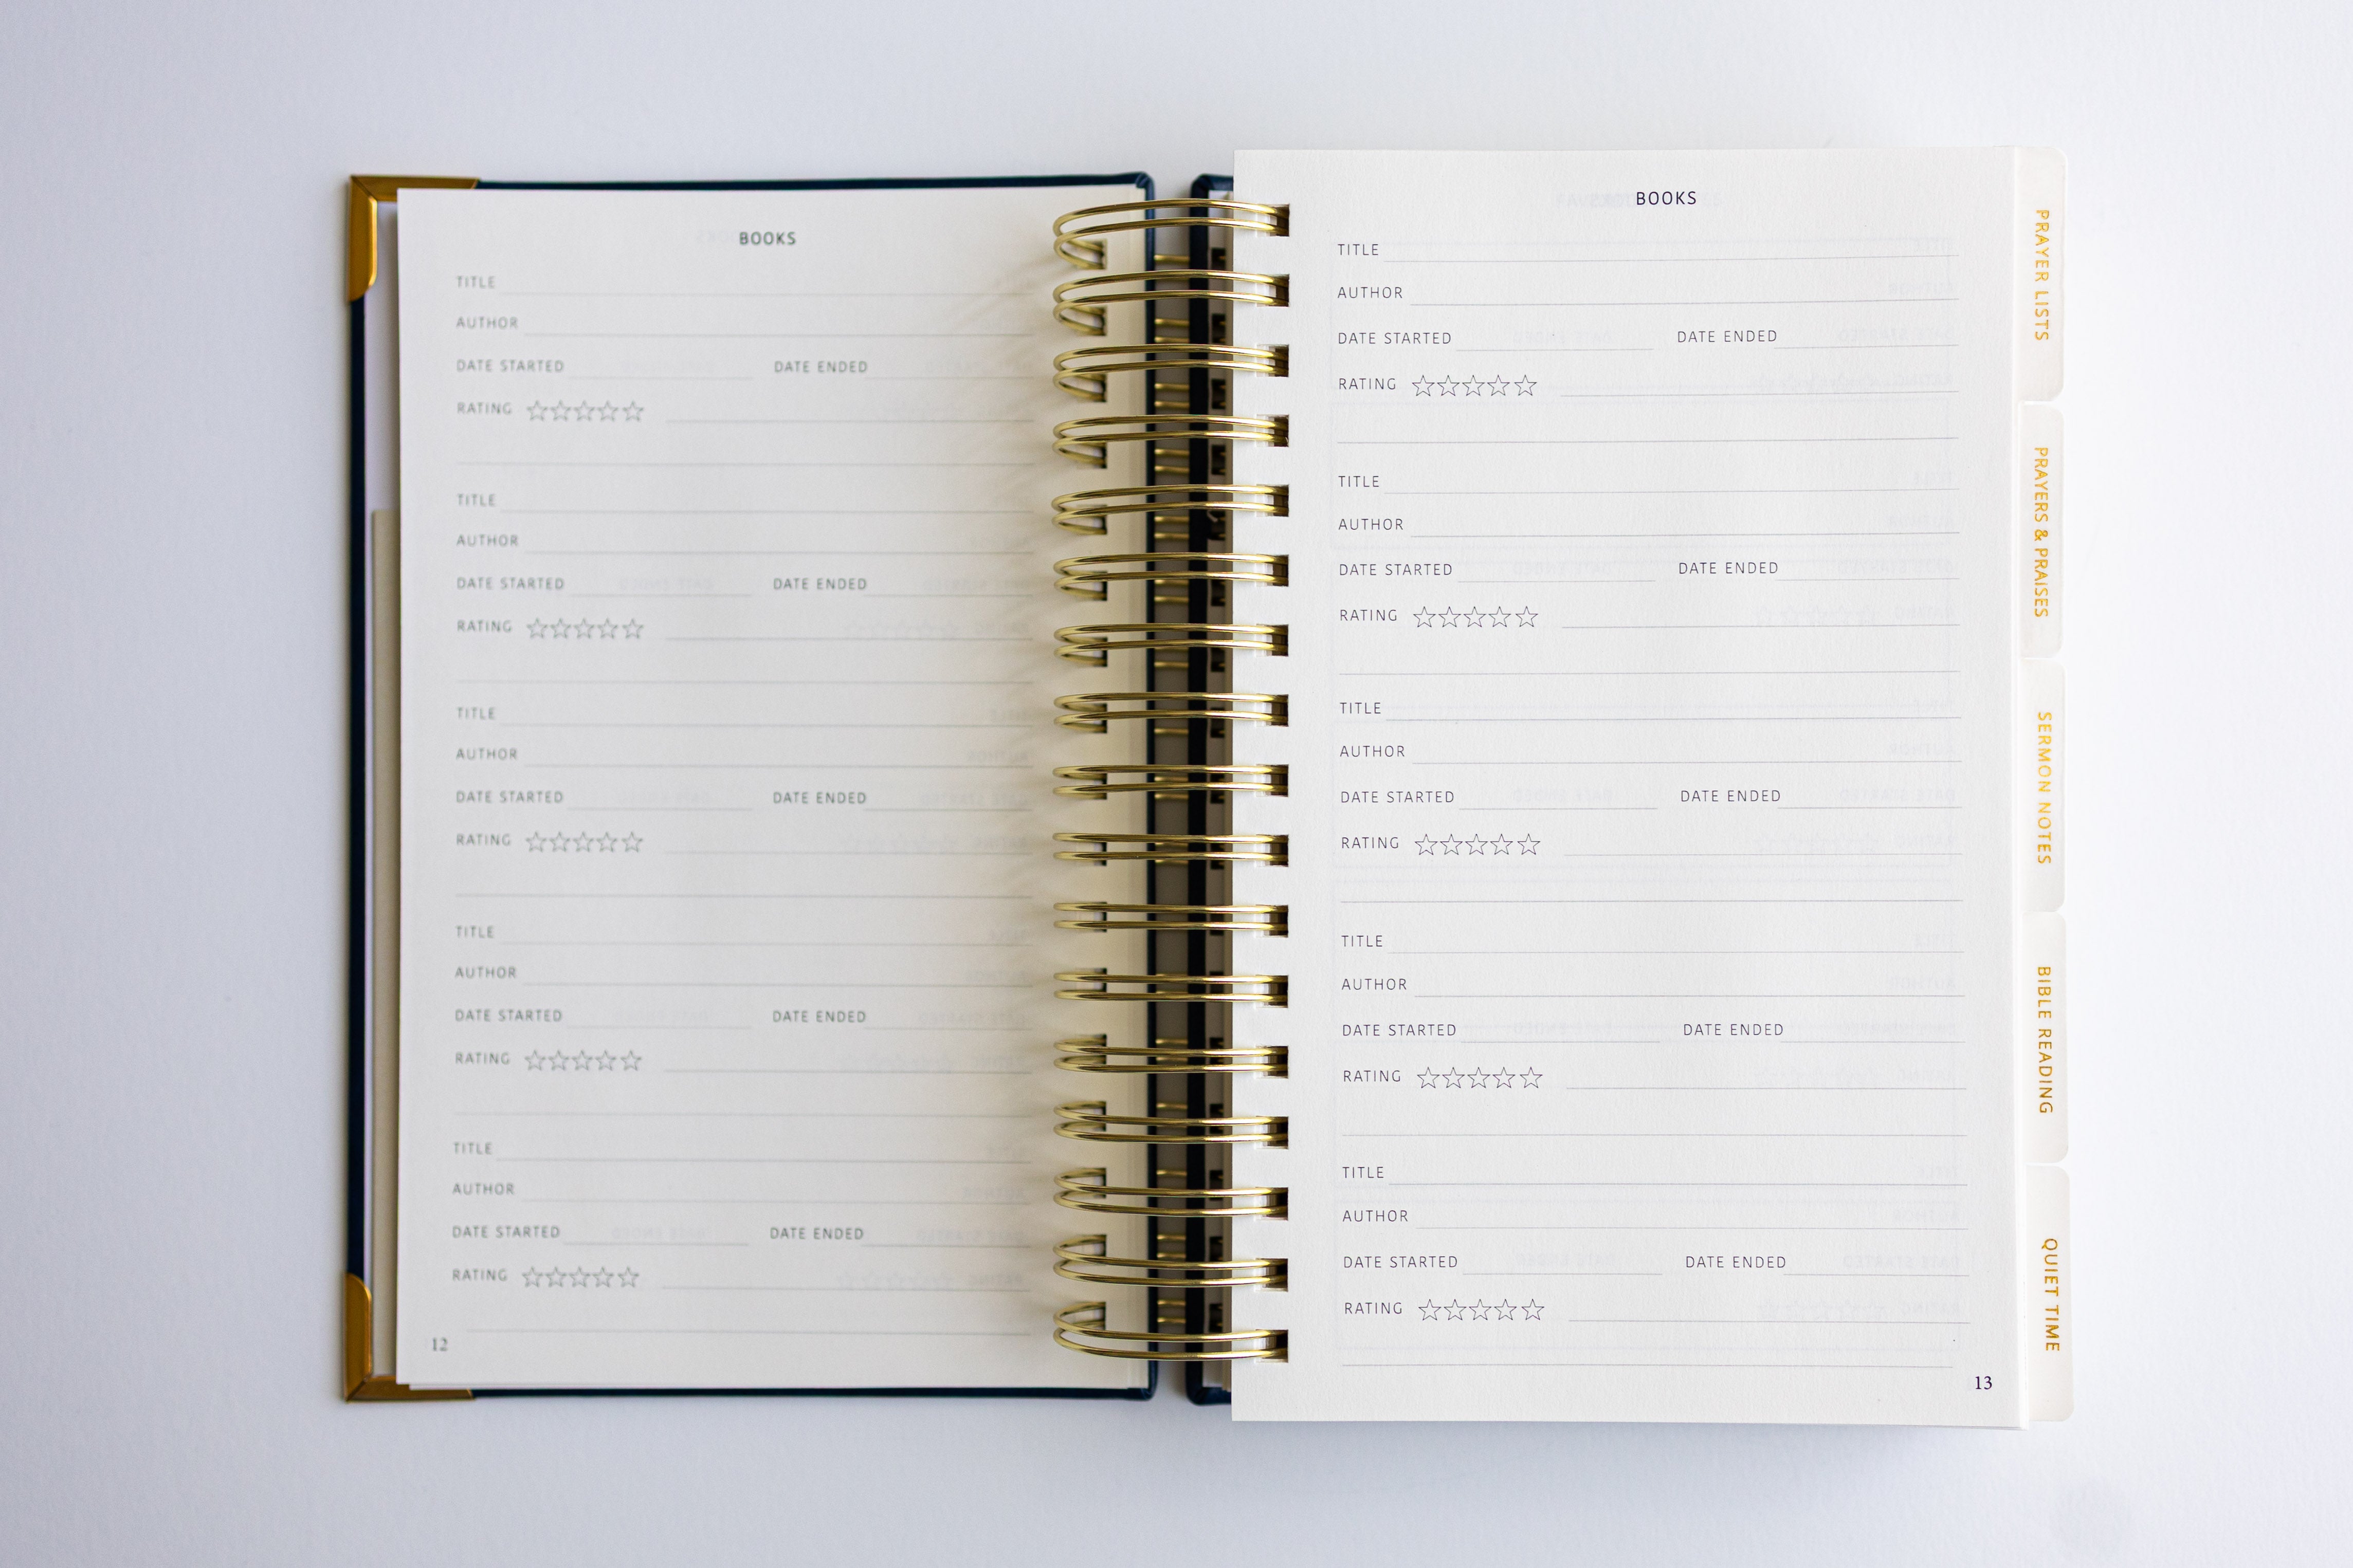 BOOKS
TITLE
AUTHOR
DATE STARTED DATE ENDED
RATING ☆☆☆☆☆
TITLE
AUTHOR
DATE STARTED DATE ENDED
RATING ☆☆☆☆☆
TITLE
AUTHOR
DATE STARTED DATE ENDED
RATING ☆☆☆☆☆
TITLE
AUTHOR
DATE STARTED DATE ENDED
RATING ☆☆☆☆☆
TITLE
AUTHOR
DATE STARTED DATE ENDED
RATING ☆☆☆☆☆
12
BOOKS
TITLE
AUTHOR
DATE STARTED DATE ENDED
RATING ☆☆☆☆☆
TITLE
AUTHOR
DATE STARTED DATE ENDED
RATING ☆☆☆☆☆
TITLE
AUTHOR
DATE STARTED DATE ENDED
RATING ☆☆☆☆☆
TITLE
AUTHOR
DATE STARTED DATE ENDED
RATING ☆☆☆☆☆
TITLE
AUTHOR
DATE STARTED DATE ENDED
RATING ☆☆☆☆☆
13
PRAYER LISTS
PRAYERS & PRAISES
SERMON NOTES
BIBLE READING
QUIET TIME